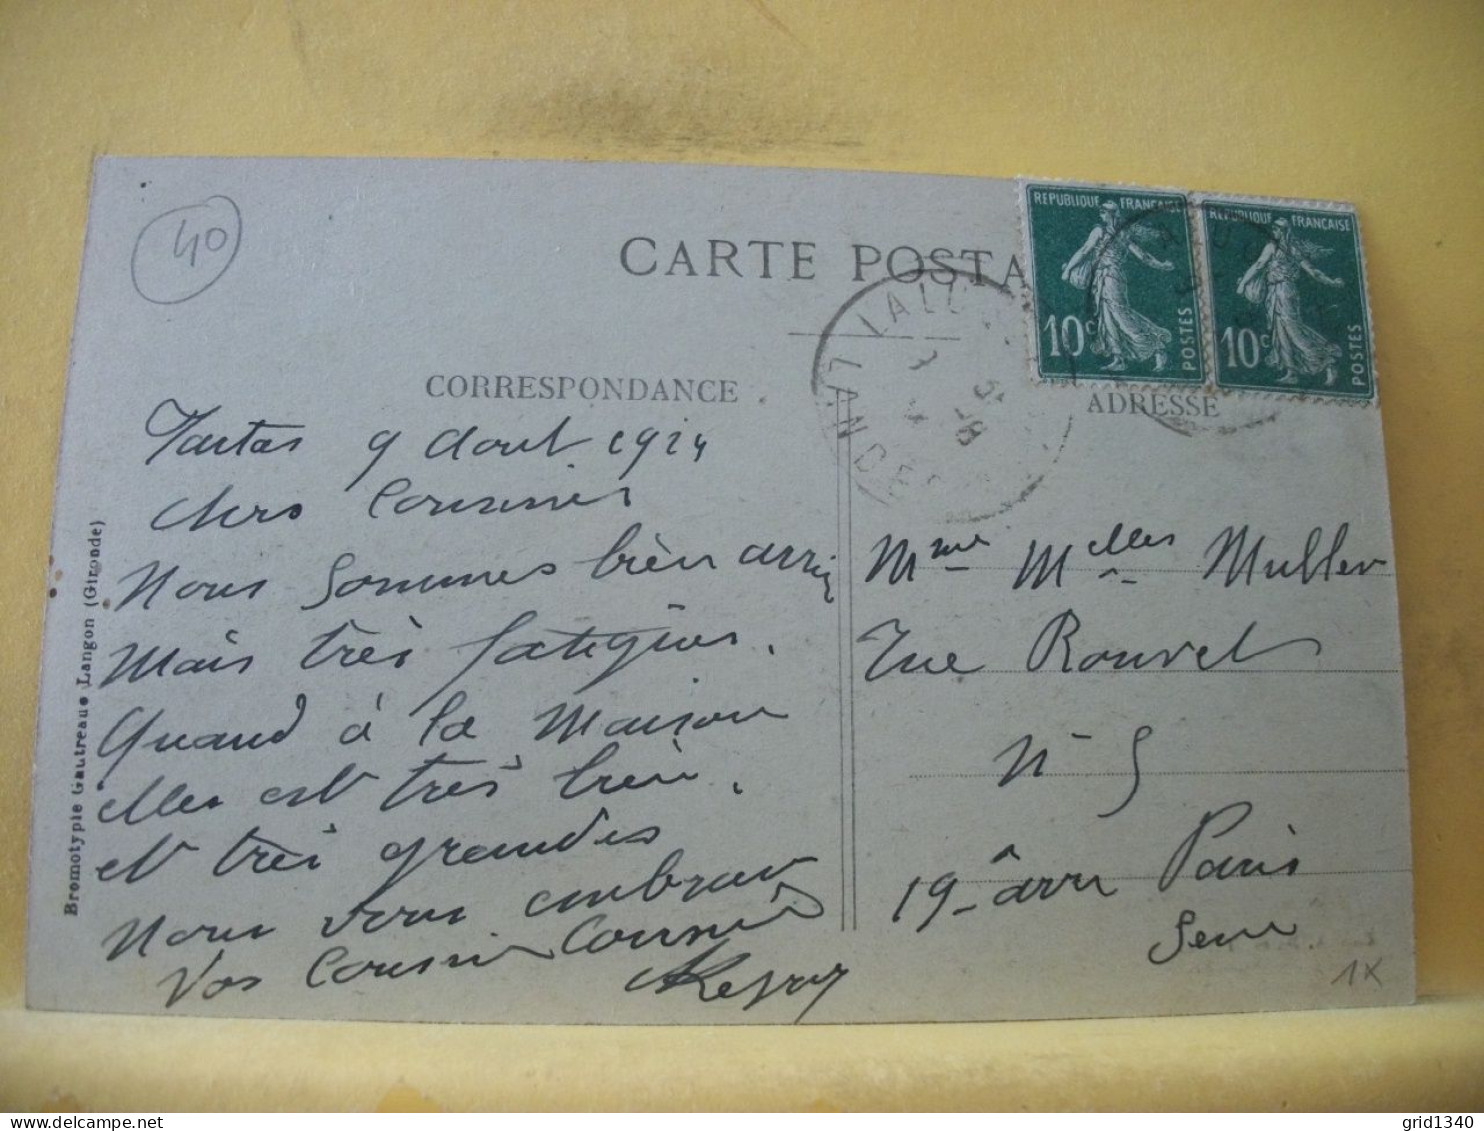 40
CARTE POSTA
REPUBLIQUE FRANÇAISE
10c POSTES
REPUBLIQUE FRANÇAISE
10c POSTES
LALU
LANDES
CORRESPONDANCE
ADRESSE
Tartas 9 Aout 1924
chers Cousines
Nous sommes bièn arriv
Mais très fatigués.
Quand à la Maison
elles est très bien.
et très grandes
Nous vous embrass
Vos Cousin Cousine
Mme Melles Muller
Rue Rouvet
N° 5
19 - arr Paris
Seine
1X
Bromotypie Gautreau • Langon (Gironde)
grid1340